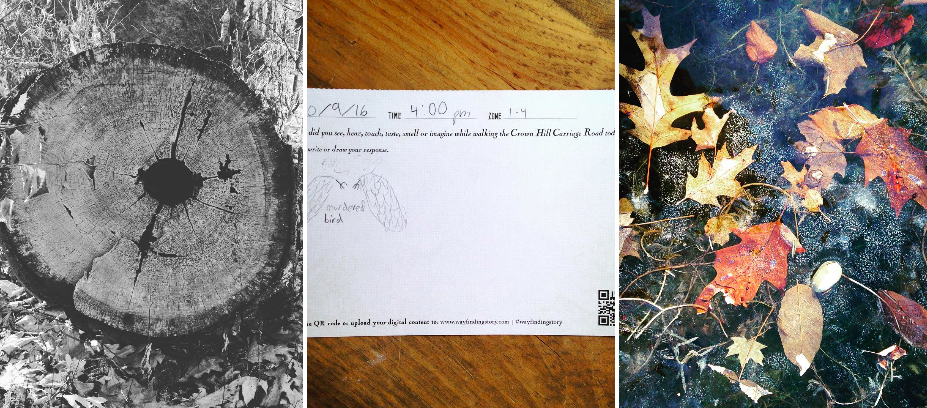 0/9/16 TIME 4:00 pm ZONE 1-4
did you see, hear, touch, taste, smell or imagine while walking the Crown Hill Carriage Road tod
write or draw your response.
murdered
bird
QR code to upload your digital content to: www.wayfindingstory.com | @wayfindingstory